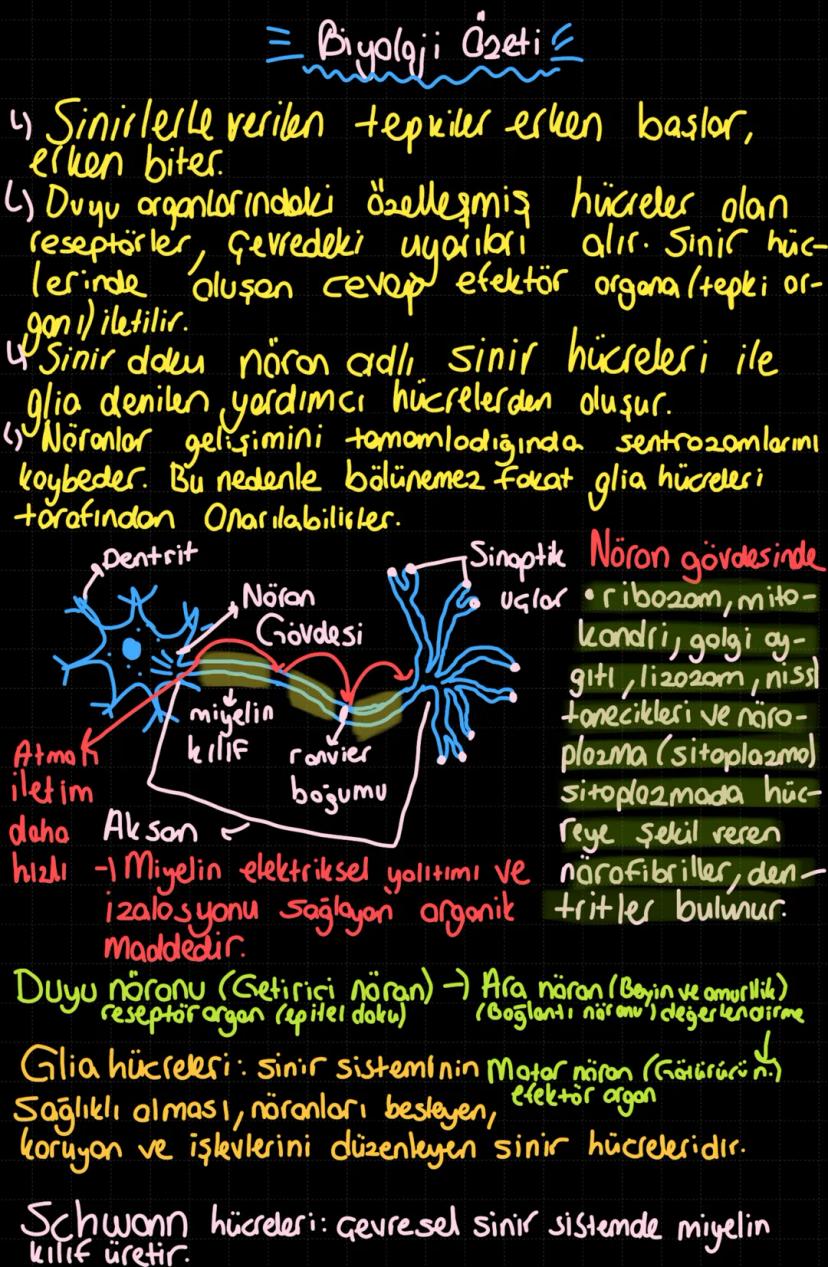 Biyoloji Özeti
↳ Sinirlerle verilen tepkiler erken başlar,
erken biter.
↳ Duyu organlarındaki özelleşmiş hücreler olan
reseptörler, çevredeki uyarıları alır. Sinir hüc-
lerinde oluşan cevap efektör organa (tepki or-
ganı) iletilir.
↳ Sinir doku nöron adlı sinir hücreleri ile
glia denilen yardımcı hücrelerden oluşur.
↳ Nöronlar gelişimini tamamladığında sentrozomlarını
kaybeder. Bu nedenle bölünemez fakat glia hücreleri
tarafından onarılabilirler.
Dentrit
Nöron
Gövdesi
Sinaptik
uçlar
miyelin
kılıf
ranvier
boğumu
Akson
Atmalı
iletim
daha
hızlı
Nöron gövdesinde
• ribozom, mito-
kondri, golgi ay-
gıtı, lizozom, nissl
tanecikleri ve nöro-
plazma (sitoplazma)
sitoplazmada hüc-
reye şekil veren
nörofibriller, den-
tritler bulunur.
→ Miyelin elektriksel yalıtımı ve
izolasyonu sağlayan organik
maddedir.
Duyu nöronu (Getirici nöron) → Ara nöron (Beyin ve omurilik)
reseptör organ (epitel doku) (Bağlantı nöronu) değerlendirme
Motor nöron (Götürücü n.)
efektör organ
Glia hücreleri: sinir sisteminin
sağlıklı olması, nöronları besleyen,
koruyan ve işlevlerini düzenleyen sinir hücreleridir.
Schwann hücreleri: çevresel sinir sistemde miyelin
kılıf üretir.